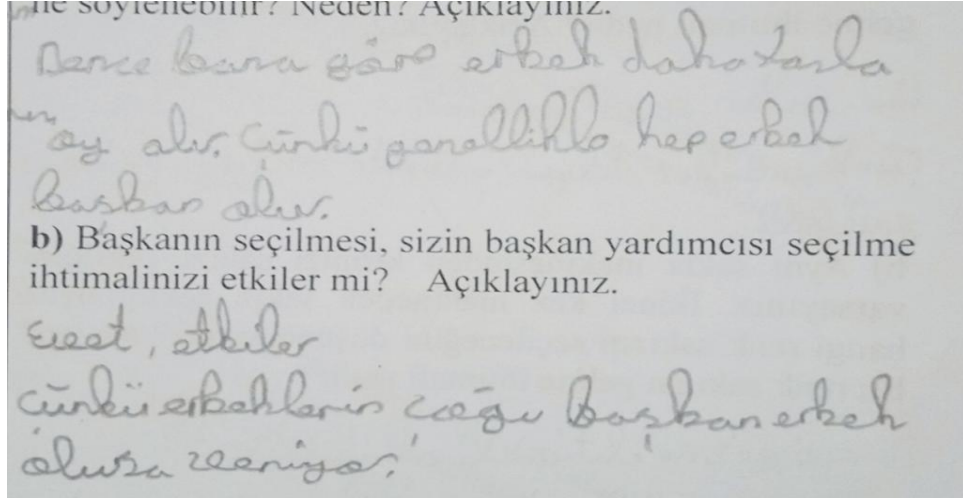 ne söylenebilir? Neden? Açıklayınız.
Bence bana göre erkek daha fazla
oy alır. Çünkü genellikle hep erkek
başkan olur.
b) Başkanın seçilmesi, sizin başkan yardımcısı seçilme
ihtimalinizi etkiler mi? Açıklayınız.
Evet, etkiler
Çünkü erkeklerin çoğu başkan erkek
olursa